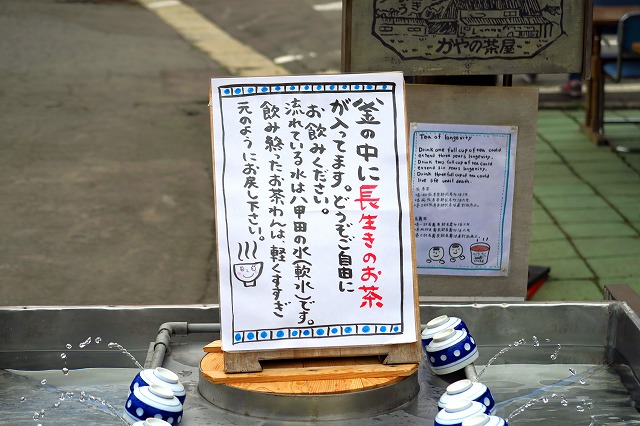 かやの茶屋
釜の中に長生きのお茶
が入ってます。どうぞご自由に
お飲みください。
流れている水は八甲田の水(軟水)です。
飲み終ったお茶わんは、軽くすすぎ
元のようにお戻し下さい。
Tea of longevity
Drink one full cup of tea could
extend three years longevity.
Drink two full cup of tea could
extend six years longevity.
Drink three full cup of tea could
live life until death.